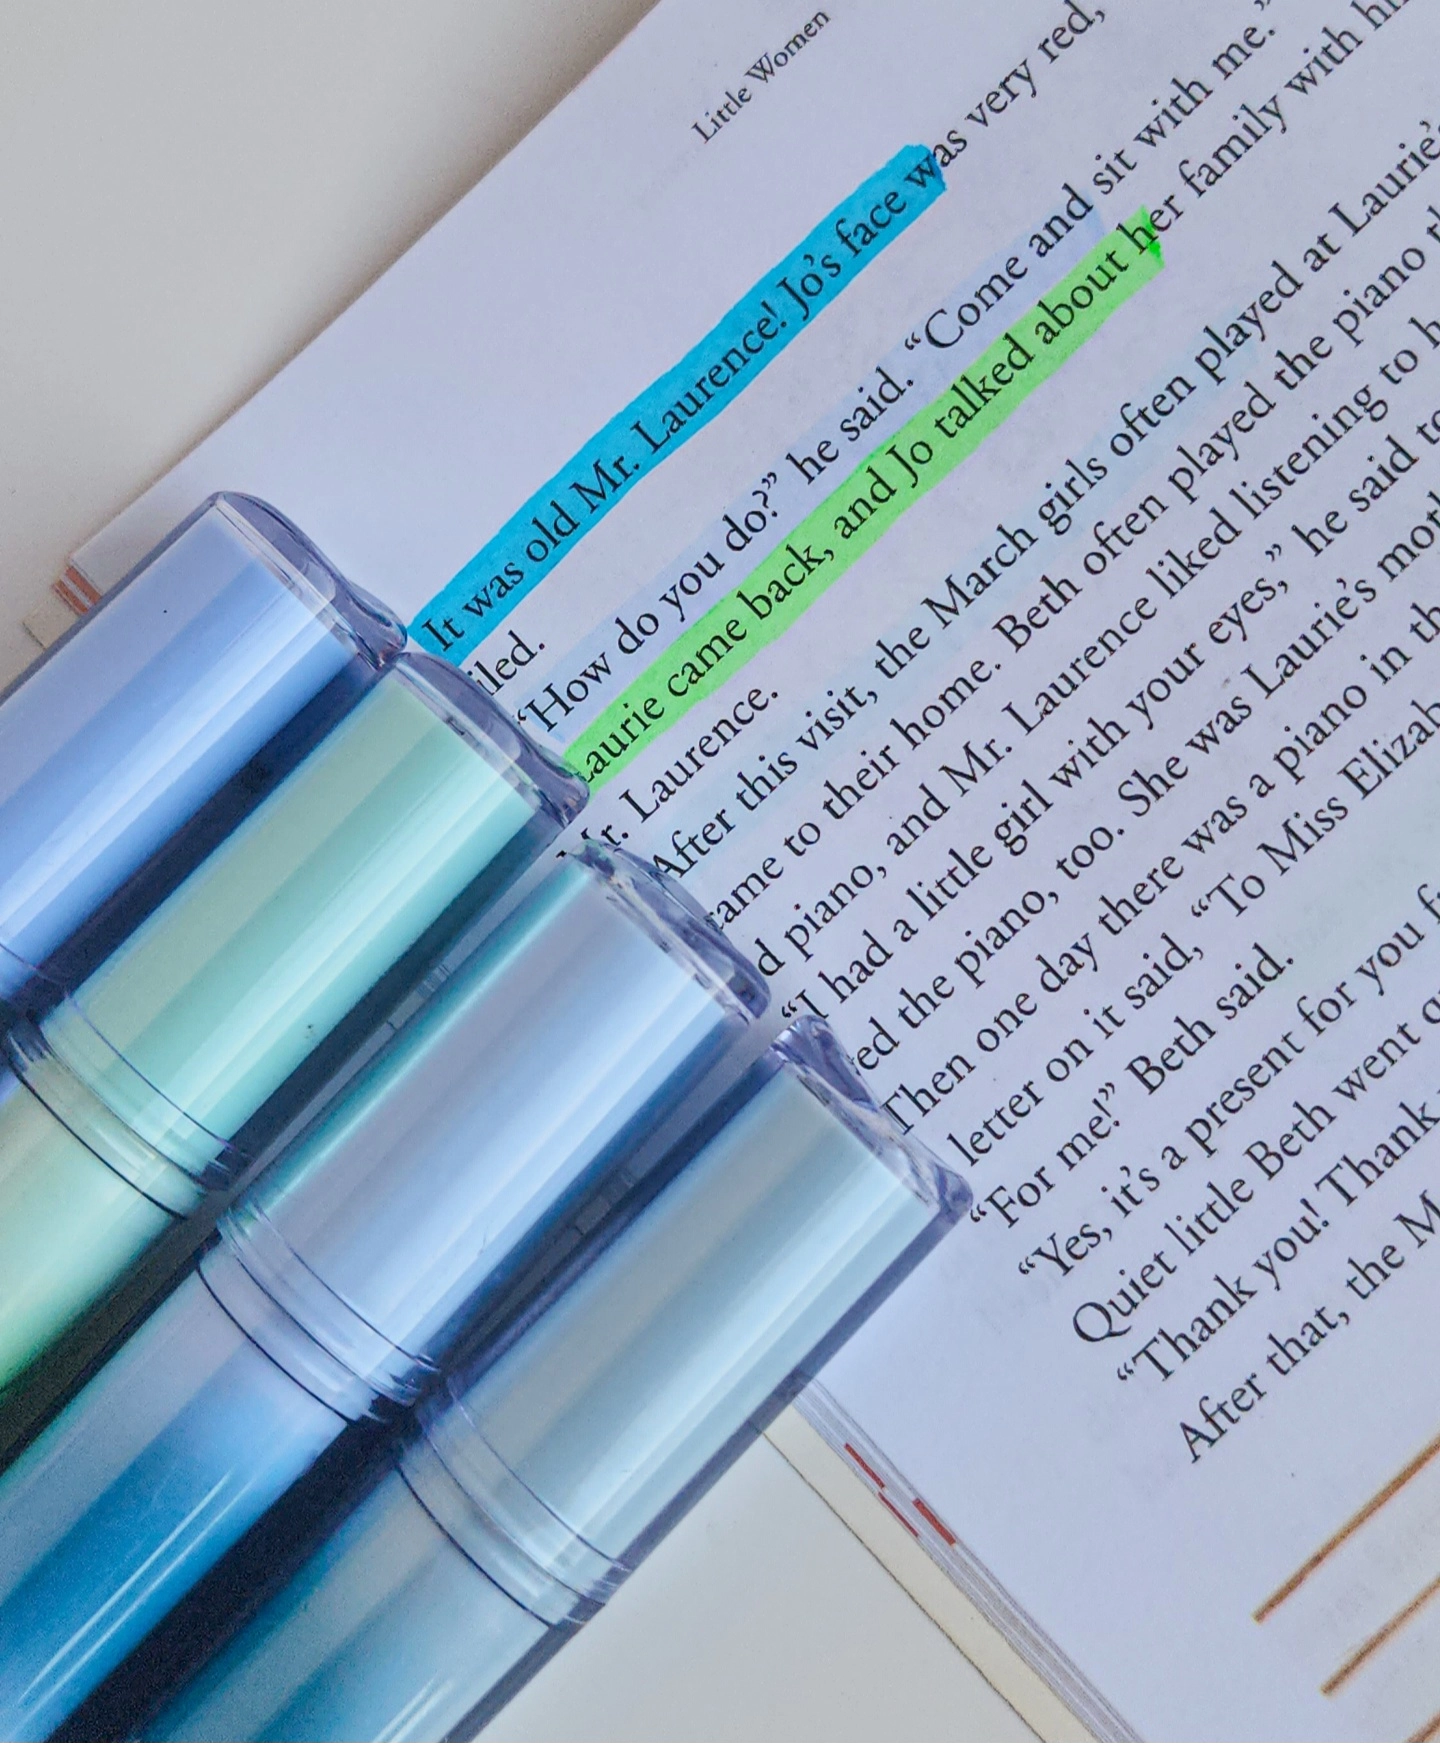 Little Women
It was old Mr. Laurence! Jo's face was very red,
iled.
“How do you do?” he said. “Come and sit with me.”
Laurie came back, and Jo talked about her family with
Mr. Laurence.
After this visit, the March girls often played at Laurie's
came to their home. Beth often played the piano
d piano, and Mr. Laurence liked listening to
“I had a little girl with your eyes,” he said
ed the piano, too. She was Laurie's
Then one day there was a piano in
letter on it said, “To Miss Elizab
“For me!” Beth said.
“Yes, it's a present for you
Quiet little Beth went
“Thank you! Thank
After that, the M